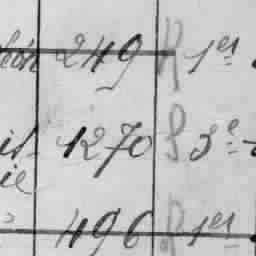 249 R 1er
1270 S 3e
ie
496 R 1er